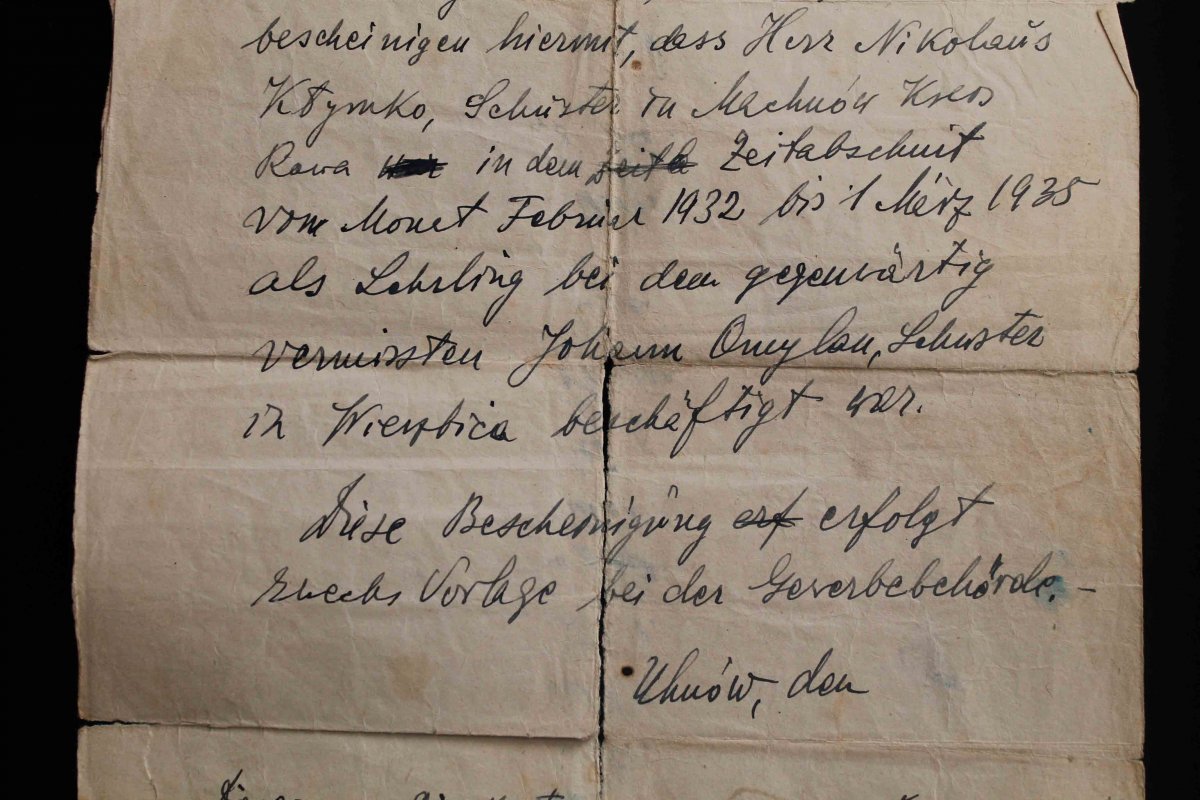 bescheinigen hiermit, dass Herr Nikolaus
Kłymko, Schuster in Machnów Kreis
Rawa in dem Zeitabschnit
vom Monat Februar 1932 bis 1 März 1935
als Lehrling bei dem gegenwärtig
vermissten Johann Omylan, Schuster
in Wierzbica beschäftigt war.
Diese Bescheinigung erf erfolgt
zwecks Vorlage bei der Gewerbebehörde. –
Uhnów, den